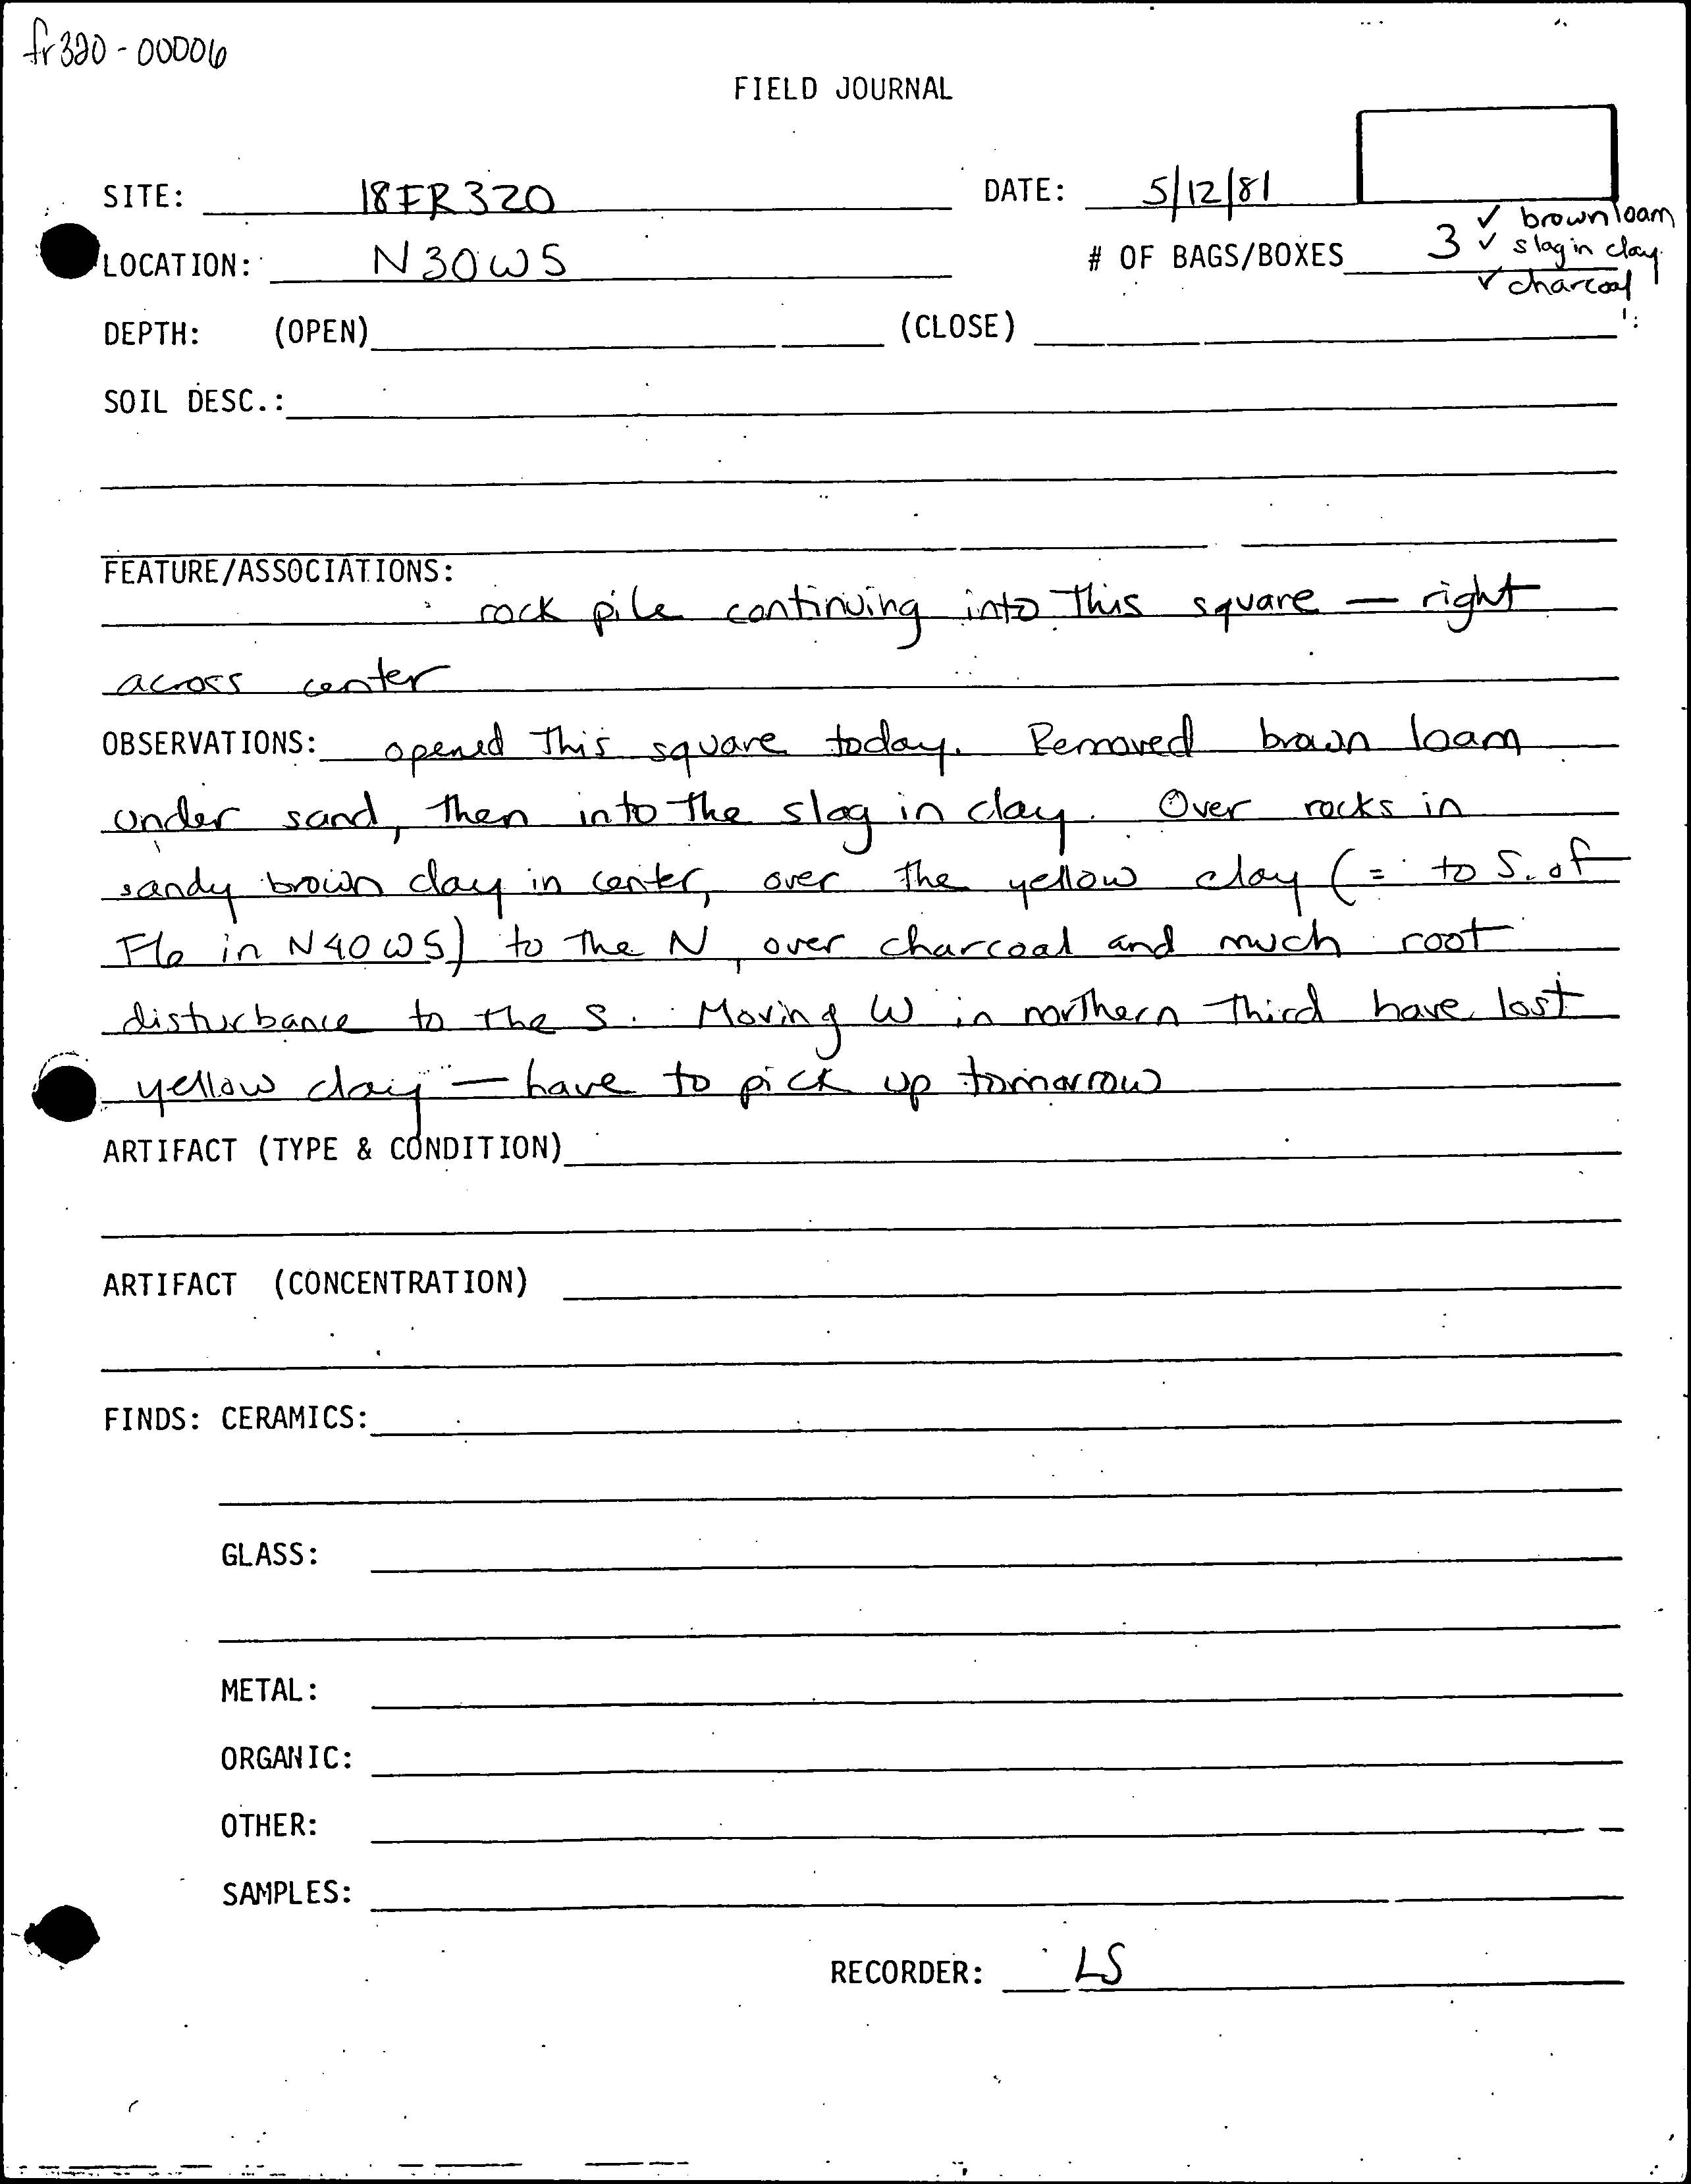 fr320-00006
FIELD JOURNAL
SITE: 18FR320 DATE: 5/12/81
✓ brown loam
LOCATION: N30W5 # OF BAGS/BOXES 3 ✓ slag in clay
✓ charcoal
DEPTH: (OPEN) (CLOSE)
SOIL DESC.:
FEATURE/ASSOCIATIONS:
rock pile continuing into This square — right
across center
OBSERVATIONS: opened This square today. Removed brown loam
under sand, Then into The slag in clay. Over rocks in
sandy brown clay in center, over The yellow clay (= to S. of
in N40W5) to The N, over charcoal and much root
disturbance to the S. Moving W in northern Third have lost
yellow clay — have to pick up tomorrow
ARTIFACT (TYPE & CONDITION)
ARTIFACT (CONCENTRATION)
FINDS: CERAMICS:
GLASS:
METAL:
ORGANIC:
OTHER:
SAMPLES:
RECORDER: LS